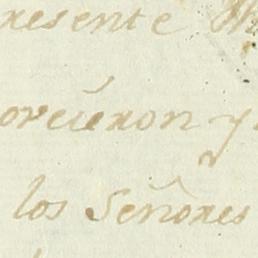 resente
orecieron y
los Señores